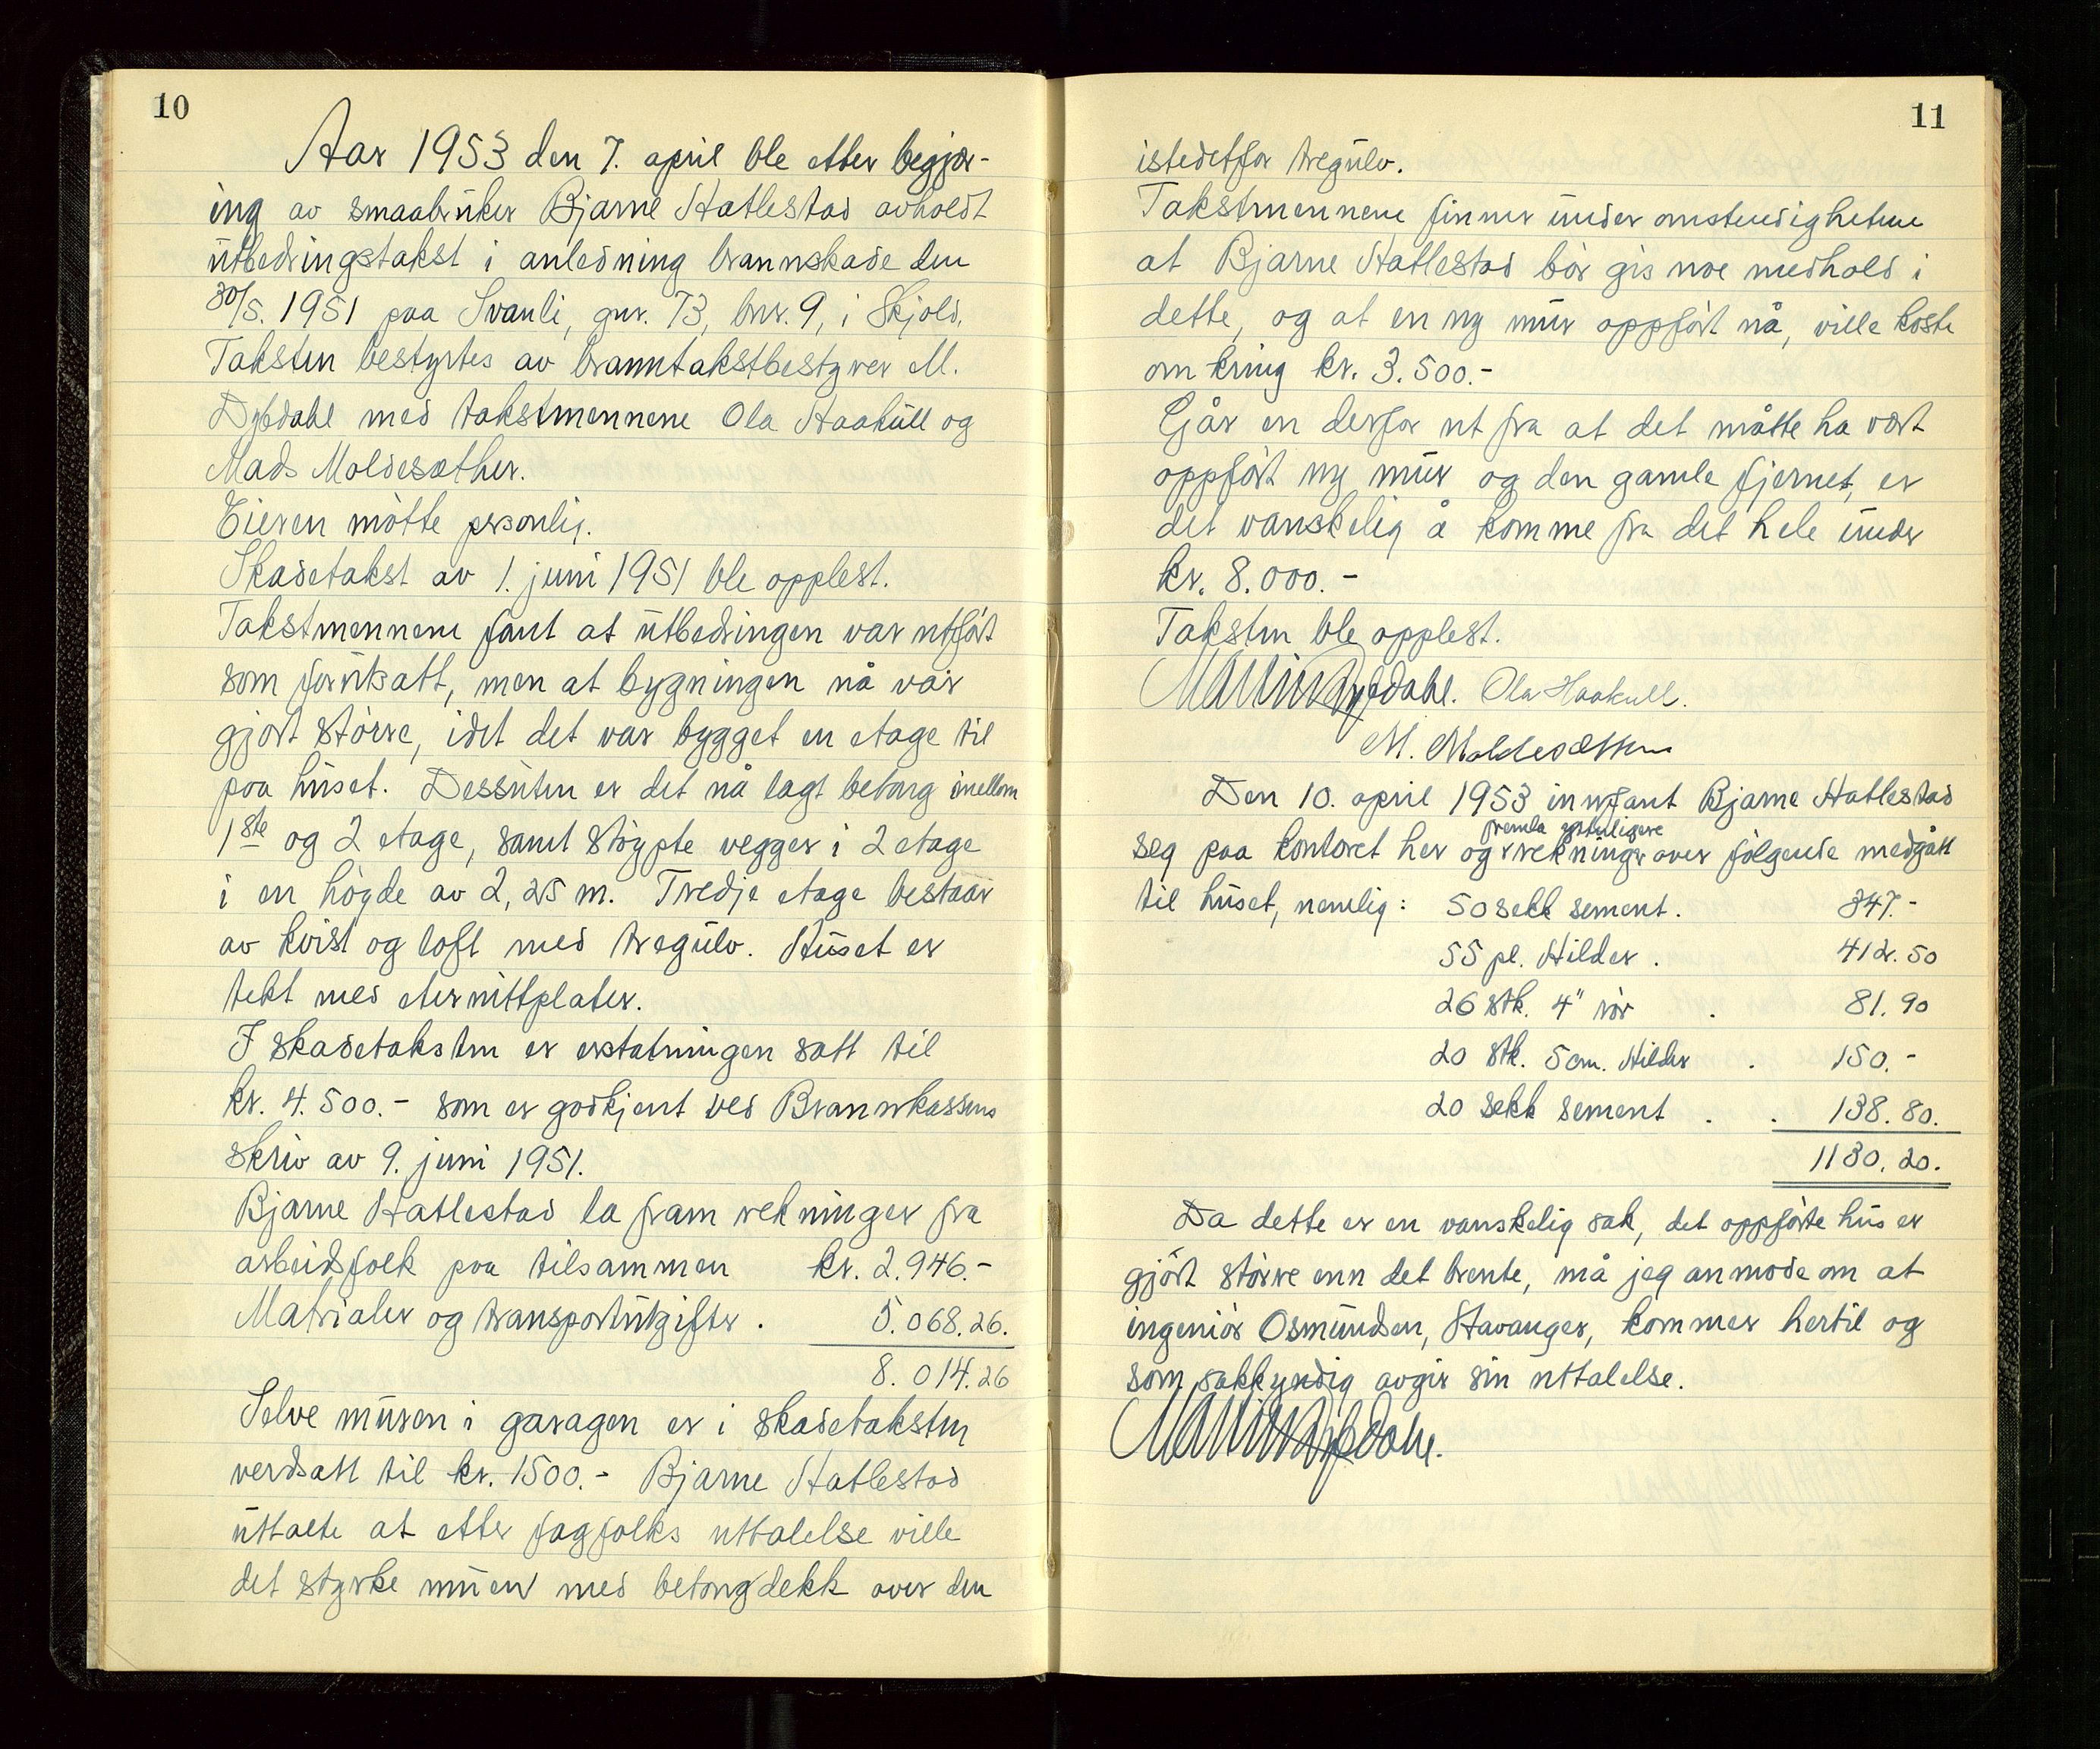 10
Aar 1953 den 7. april ble etter begjær-
ing av smaabruker Bjarne Hatlestad avholdt
utbedringstakst i anledning brannskade den
30/5. 1951 paa Svanli, gnr. 73, bnr. 9, i Skjold.
Taksten bestyrtes av branntakstbestyrer M.
Dybdahl med takstmennene Ola Haakull og
Mads Moldesæther.
Eieren møtte personlig.
Skadetakst av 1. juni 1951 ble opplest.
Takstmennene fant at utbedringen var utført
som forutsatt, men at bygningen nå var
gjort større, idet det var bygget en etage til
paa huset. Dessuten er det nå lagt betong imellom
1ste og 2 etage, samt støypte vegger i 2 etage
i en høgde av 2,25 m. Tredje etage bestaar
av kvist og loft med tregulv. Huset er
tekt med eternittplater.
I skadetaksten er erstatningen satt til
kr. 4.500.- som er godkjent ved Brannkassens
skriv av 9. juni 1951.
Bjarne Hatlestad la fram rekninger fra
arbeidsfolk paa tilsammen kr. 2.946.-
Matrialer og transportutgifter . 5.068.26.
8.014.26
Selve muren i garagen er i skadetaksten
verdsatt til kr. 1500.- Bjarne Hatlestad
uttalte at etter fagfolks uttalelse ville
det styrke muren med betongdekk over den
11
istedetfor tregulv.
Takstmennene finner under omstendighetene
at Bjarne Hatlestad bør gis noe medhold i
dette, og at en ny mur oppført nå, ville koste
omkring kr. 3.500.-
Går en derfor ut fra at det måtte ha vært
oppført ny mur og den gamle fjernet, er
det vanskelig å komme fra det hele under
kr. 8.000.-
Taksten ble opplest.
Martin Dybdahl. Ola Haakull.
M. Moldesæther
Den 10. april 1953 innfant Bjarne Hatlestad
fremla ytterligere
seg paa kontoret her og rekninger over følgende medgått
til huset, nemlig: 50 sekk sement. 347.-
55 pl. Hilder . 412.50
26 stk. 4" rør . 81.90
20 stk. 5 cm. Hilder . 150.-
20 sekk sement . . 138.80.
1130.20.
Da dette er en vanskelig sak, det oppførte hus er
gjort større enn det brente, må jeg anmode om at
ingeniør Osmundsen, Stavanger, kommer hertil og
som sakkyndig avgir sin uttalelse.
Martin Dybdahl.